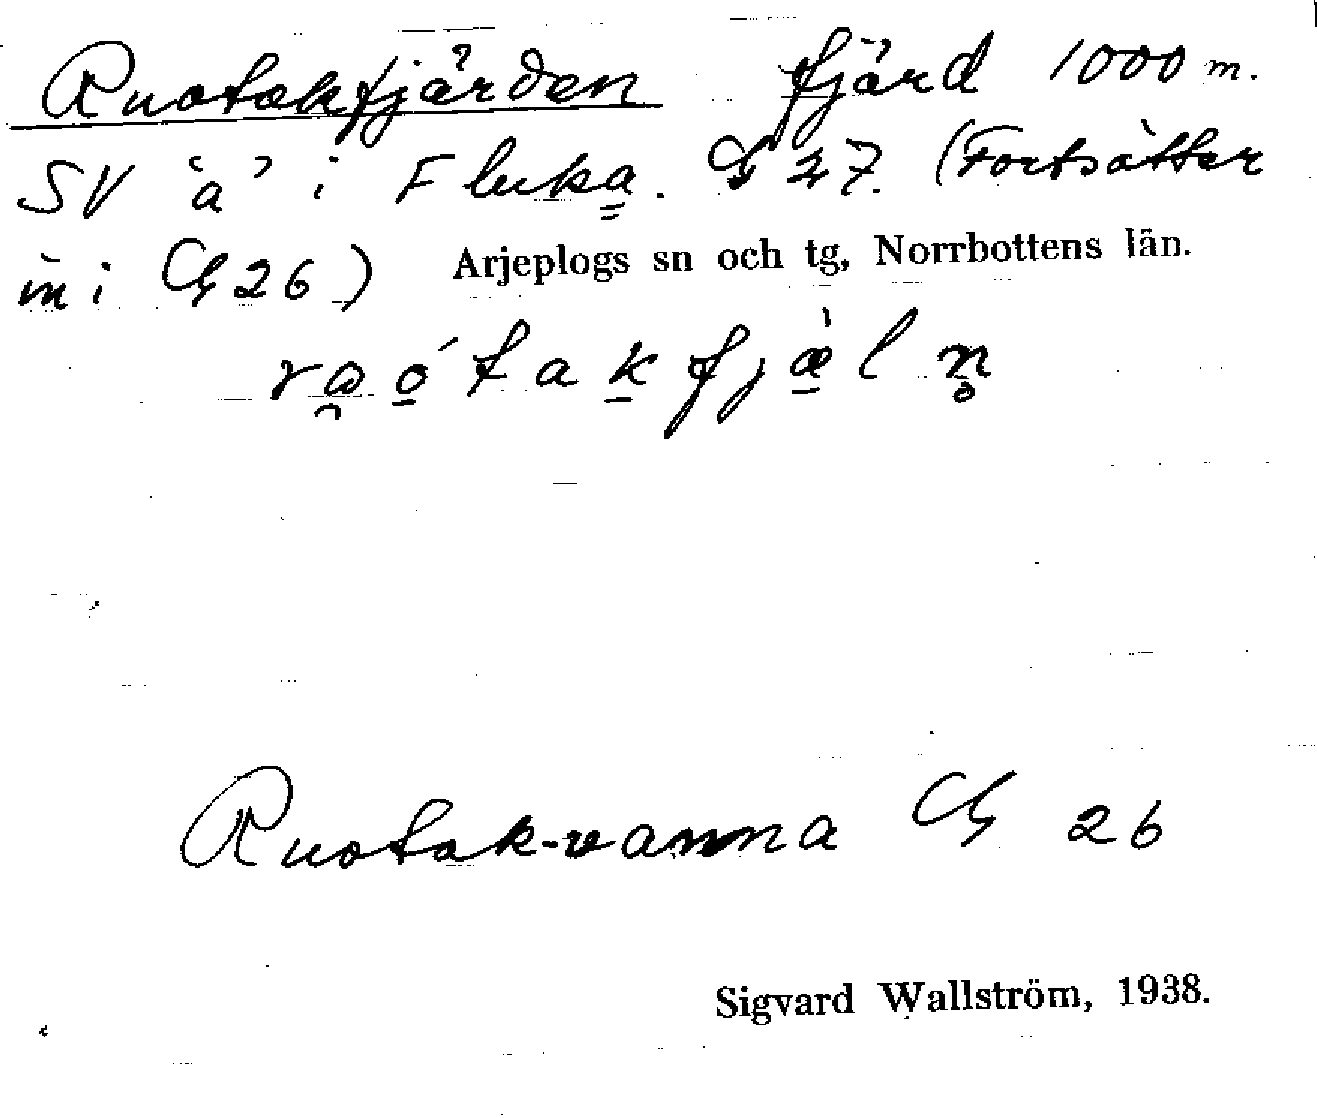 Ruotakfjärden fjärd 1000 m.
SV "a" i Fluka. G 27. (Fortsätter
in i G 26) Arjeplogs sn och tg, Norrbottens län.
Ruotak-vanna G 26
Sigvard Wallström, 1938.